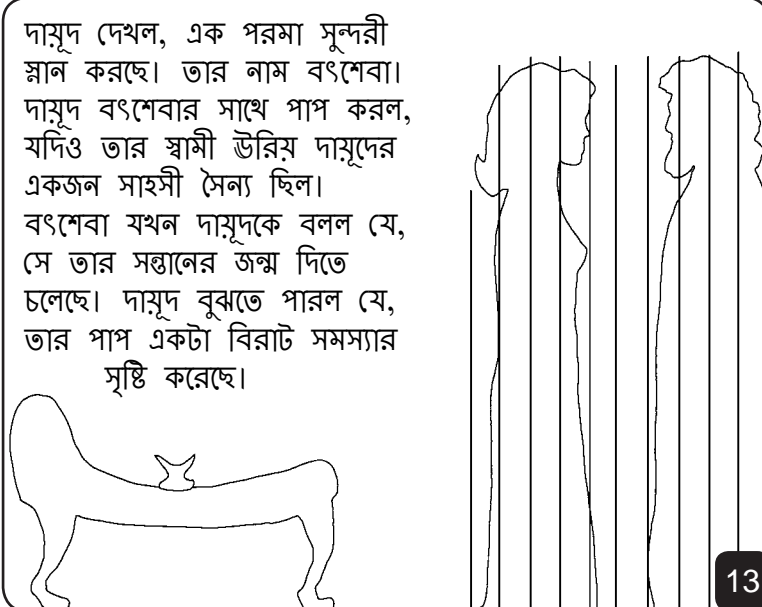 দায়ূদ দেখল, এক পরমা সুন্দরী
স্নান করছে। তার নাম বৎশেবা।
দায়ূদ বৎশেবার সাথে পাপ করল,
যদিও তার স্বামী ঊরিয় দায়ূদের
একজন সাহসী সৈন্য ছিল।
বৎশেবা যখন দায়ূদকে বলল যে,
সে তার সন্তানের জন্ম দিতে
চলেছে। দায়ূদ বুঝতে পারল যে,
তার পাপ একটা বিরাট সমস্যার
সৃষ্টি করেছে।
13